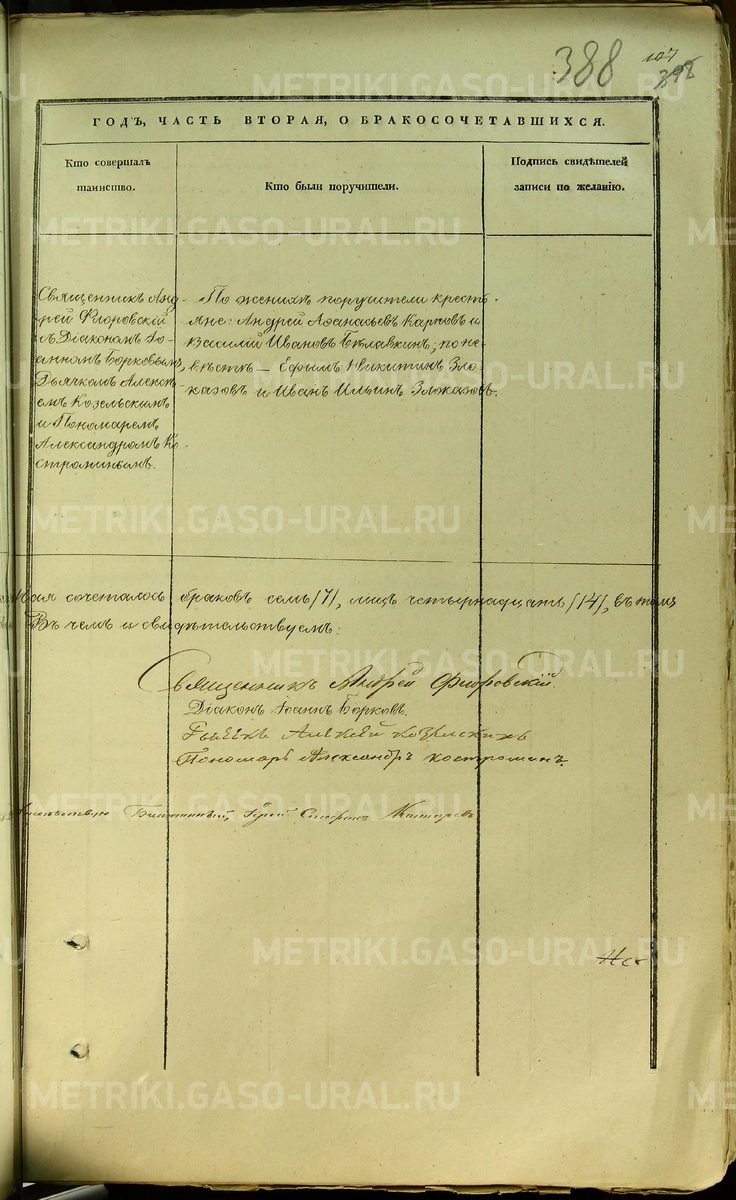 388
107
398
ГОДЪ, ЧАСТЬ ВТОРАЯ, О БРАКОСОЧЕТАВШИХСЯ.
Кто совершалъ
таинство.
Кто были поручители.
Подпись свидѣтелей
записи по желанію.
Священникъ Анд-
рей Флоровскій
съ Діакономъ Іо-
анномъ Борковымъ,
Дьячкомъ Алексѣ-
емъ Козельскимъ
и Пономаремъ
Александромъ Ко-
строминымъ.
По женихѣ поручители кресть-
яне: Андрей Аѳанасьевъ Карпевъ и
Василій Ивановъ Булавкинъ; по не-
вѣстѣ — Ефимъ Никитинъ Зло-
казовъ и Иванъ Ильинъ Злоказовъ.
Мая сочеталось браковъ семь /7/, лицъ четырнадцать /14/, въ томъ
Въ чемъ и свидѣтельствуемъ:
Священникъ Андрей Флоровскій.
Діаконъ Іоаннъ Борковъ.
Дьячекъ Алексѣй Козельскихъ
Пономарь Александръ Костроминъ.
Благочинный, Іерей Стефанъ
METRIKI.GASO-URAL.RU